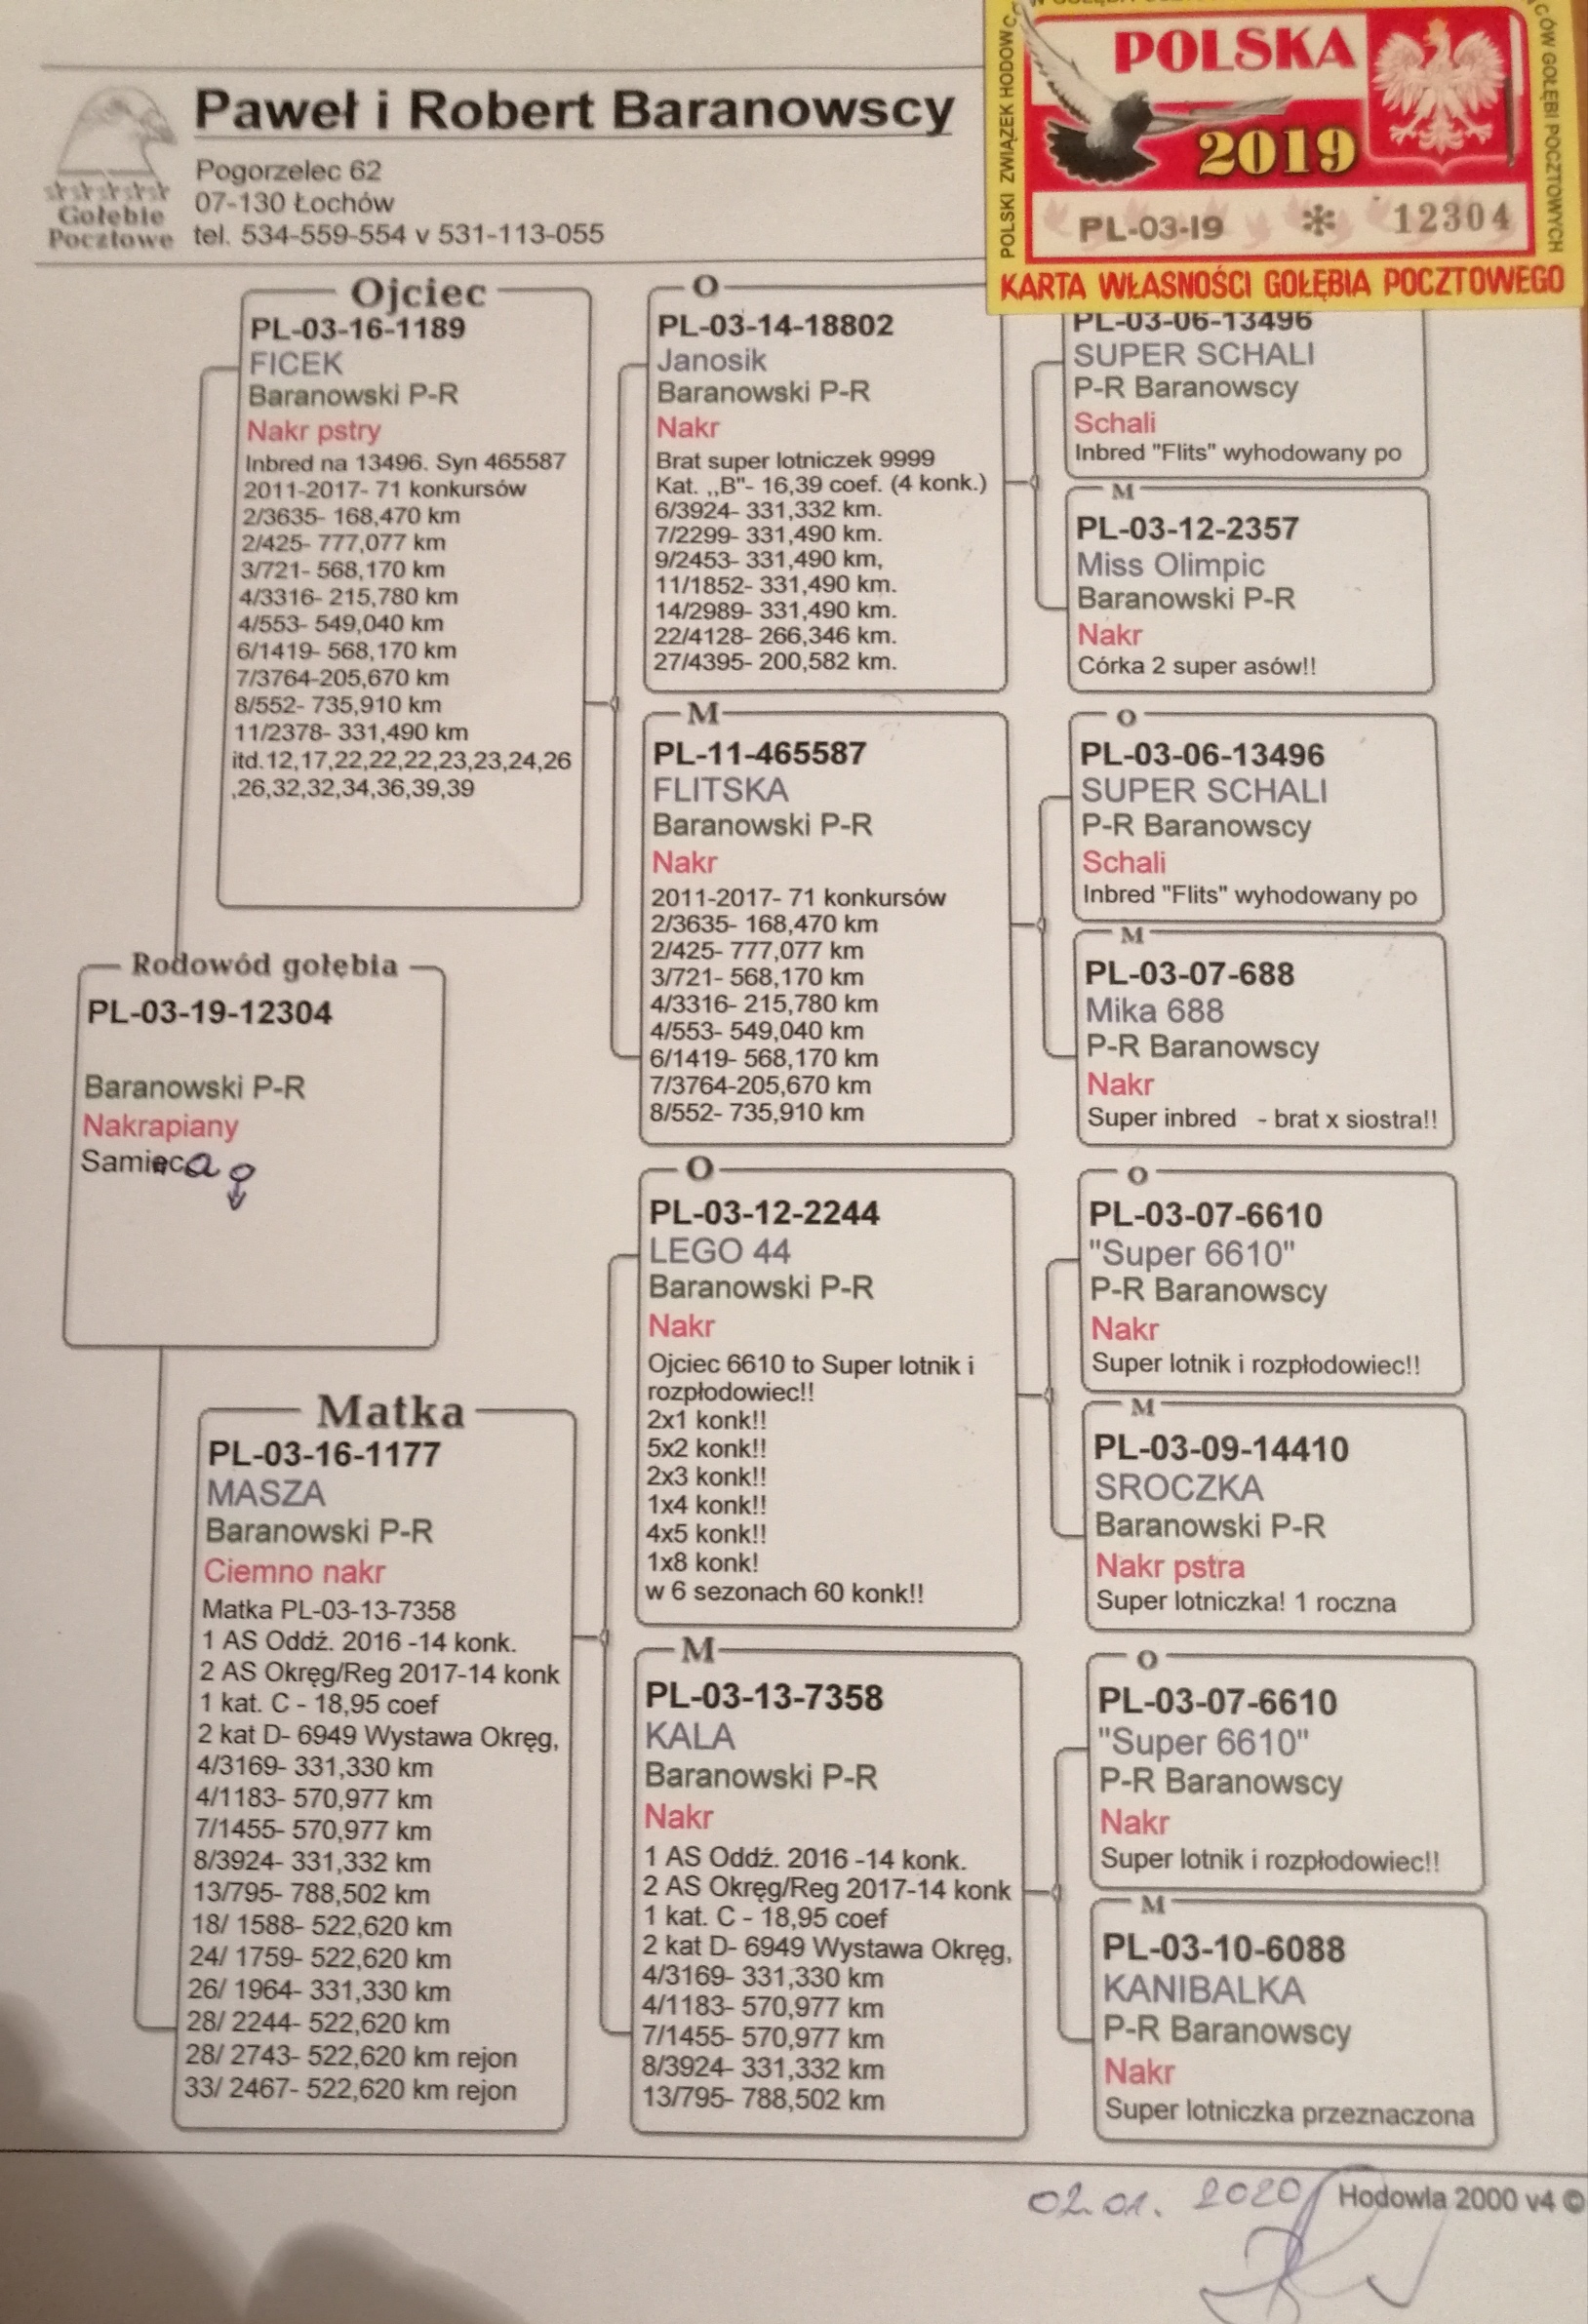 Paweł i Robert Baranowscy
Pogorzelec 62
07-130 Łochów
tel. 534-559-554 v 531-113-055
Gołębie
Pocztowe
POLSKI ZWIĄZEK HODOWC
POLSKA
2019
PL-03-19 * 12304
KARTA WŁASNOŚCI GOŁĘBIA POCZTOWEGO
CÓW GOŁĘBI POCZTOWYCH
Ojciec
PL-03-16-1189
FICEK
Baranowski P-R
Nakr pstry
Inbred na 13496. Syn 465587
2011-2017- 71 konkursów
2/3635- 168,470 km
2/425- 777,077 km
3/721- 568,170 km
4/3316- 215,780 km
4/553- 549,040 km
6/1419- 568,170 km
7/3764-205,670 km
8/552- 735,910 km
11/2378- 331,490 km
itd.12,17,22,22,22,23,23,24,26
,26,32,32,34,36,39,39
Rodowód gołębia
PL-03-19-12304
Baranowski P-R
Nakrapiany
Samica ♀
Matka
PL-03-16-1177
MASZA
Baranowski P-R
Ciemno nakr
Matka PL-03-13-7358
1 AS Oddź. 2016 -14 konk.
2 AS Okręg/Reg 2017-14 konk
1 kat. C - 18,95 coef
2 kat D- 6949 Wystawa Okręg,
4/3169- 331,330 km
4/1183- 570,977 km
7/1455- 570,977 km
8/3924- 331,332 km
13/795- 788,502 km
18/ 1588- 522,620 km
24/ 1759- 522,620 km
26/ 1964- 331,330 km
28/ 2244- 522,620 km
28/ 2743- 522,620 km rejon
33/ 2467- 522,620 km rejon
O
PL-03-14-18802
Janosik
Baranowski P-R
Nakr
Brat super lotniczek 9999
Kat. ,,B"- 16,39 coef. (4 konk.)
6/3924- 331,332 km.
7/2299- 331,490 km.
9/2453- 331,490 km,
11/1852- 331,490 km.
14/2989- 331,490 km.
22/4128- 266,346 km.
27/4395- 200,582 km.
M
PL-11-465587
FLITSKA
Baranowski P-R
Nakr
2011-2017- 71 konkursów
2/3635- 168,470 km
2/425- 777,077 km
3/721- 568,170 km
4/3316- 215,780 km
4/553- 549,040 km
6/1419- 568,170 km
7/3764-205,670 km
8/552- 735,910 km
O
PL-03-12-2244
LEGO 44
Baranowski P-R
Nakr
Ojciec 6610 to Super lotnik i
rozpłodowiec!!
2x1 konk!!
5x2 konk!!
2x3 konk!!
1x4 konk!!
4x5 konk!!
1x8 konk!
w 6 sezonach 60 konk!!
M
PL-03-13-7358
KALA
Baranowski P-R
Nakr
1 AS Oddź. 2016 -14 konk.
2 AS Okręg/Reg 2017-14 konk
1 kat. C - 18,95 coef
2 kat D- 6949 Wystawa Okręg,
4/3169- 331,330 km
4/1183- 570,977 km
7/1455- 570,977 km
8/3924- 331,332 km
13/795- 788,502 km
PL-03-06-13496
SUPER SCHALI
P-R Baranowscy
Schali
Inbred "Flits" wyhodowany po
M
PL-03-12-2357
Miss Olimpic
Baranowski P-R
Nakr
Córka 2 super asów!!
O
PL-03-06-13496
SUPER SCHALI
P-R Baranowscy
Schali
Inbred "Flits" wyhodowany po
M
PL-03-07-688
Mika 688
P-R Baranowscy
Nakr
Super inbred - brat x siostra!!
O
PL-03-07-6610
"Super 6610"
P-R Baranowscy
Nakr
Super lotnik i rozpłodowiec!!
M
PL-03-09-14410
SROCZKA
Baranowski P-R
Nakr pstra
Super lotniczka! 1 roczna
O
PL-03-07-6610
"Super 6610"
P-R Baranowscy
Nakr
Super lotnik i rozpłodowiec!!
M
PL-03-10-6088
KANIBALKA
P-R Baranowscy
Nakr
Super lotniczka przeznaczona
02.01. 2020
Hodowla 2000 v4 ©